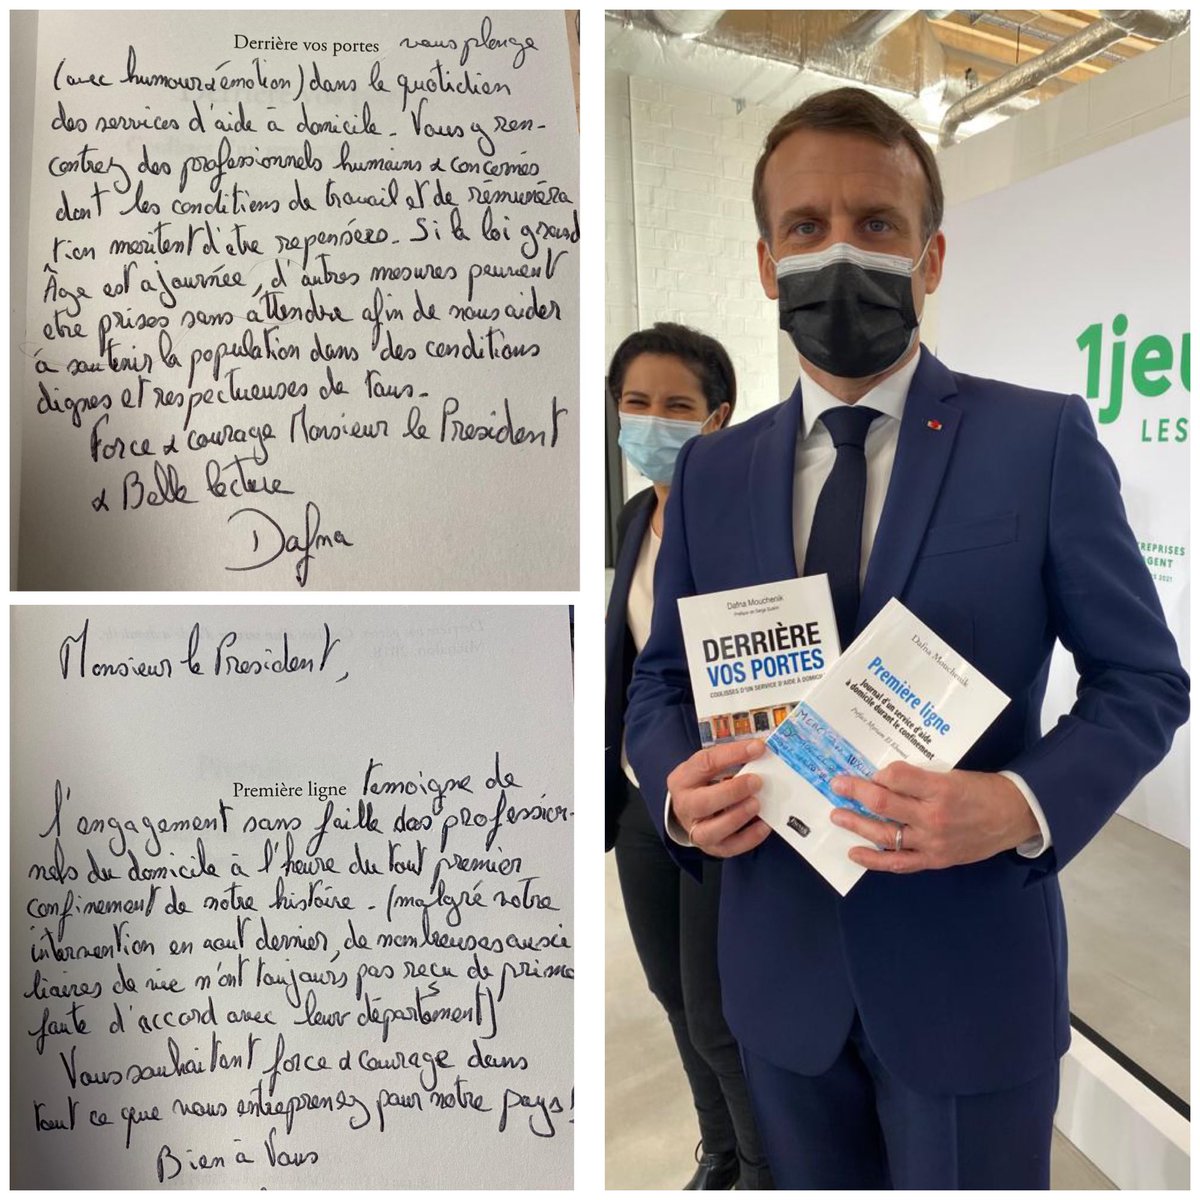 Derrière vos portes vous plonge
(avec humour & émotion) dans le quotidien
des services d'aide à domicile. Vous y ren-
contrez des professionnels humains & concernés
dont les conditions de travail et de rémunéra
tion méritent d'être repensées. Si la loi grand
Âge est ajournée, d'autres mesures peuvent
etre prises sans attendre afin de nous aider
à soutenir la population dans des conditions
dignes et respectueuses de tous.
Force & courage Monsieur le President
& Belle lecture
Dafna
Monsieur le President,
Première ligne temoigne de
l'engagement sans faille des profession-
nels du domicile à l'heure du tout premier
confinement de notre histoire. (malgré votre
intervention en aout dernier, de nombreuses auxi
liaires de vie n'ont toujours pas reçu de prime
faute d'accord avec leurs départements)
Vous souhaitant force & courage dans
tout ce que vous entreprenez pour notre pays!
Bien à Vous
1jeu
LES
REPRISES
GENT
2021
Dafna Mouchenik
DERRIÈRE
VOS PORTES
COULISSES D'UN SERVICE D'AIDE À DOMICI
Dafna Mouchenik
Première ligne
Journal d'un service d'aide
à domicile durant le confinement
Préface Myriam El Khomri
MERCI AUX AUXILI